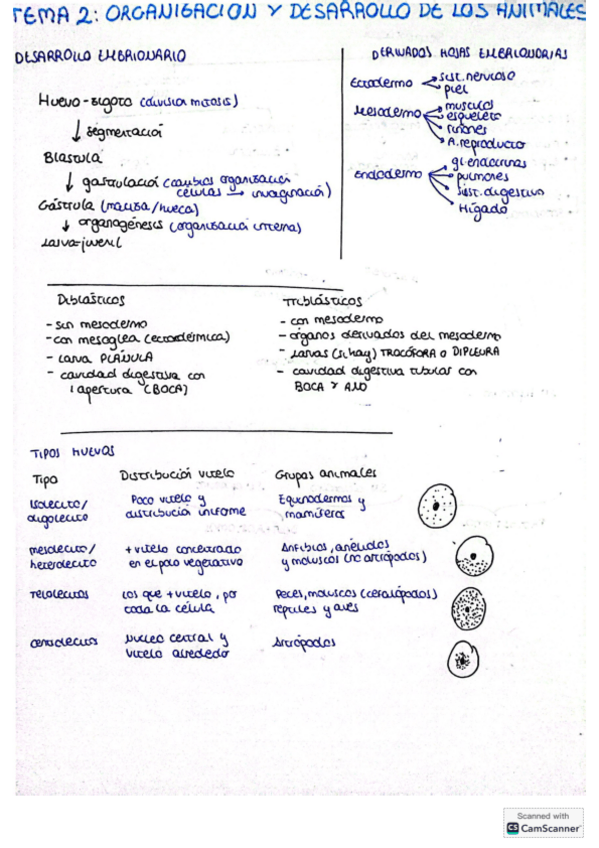 TEMA 2: ORGANISACION Y DESARROLLO DE LOS ANIMALES
DESARROLLO EMBRIONARIO
Huevo-sigoto (división mitosis)
↓ segmentación
Blástula
↓ gastrulació (cambios organisació
células → invaginació)
Gástrula (masisa/hueca)
↓ organogénesis (organisació interna)
Larva-juvenil
DERIVADOS HOJAS EMBRIONARIAS
Ectodermo
sist. nervioso
piel
Mesodermo
musculos
esqueleto
riñones
A. reproducto
Endodermo
gl. endocrinas
pulmones
sist. digestivo
Hígado
Diblásticos
- sin mesodermo
- con mesoglea (ectodérmica)
- larva PLÁNULA
- cavidad digestiva con
1 apertura (BOCA)
Triblásticos
- con mesodermo
- órganos derivados del mesodermo
- larvas (si hay) TROCÓFORA O DIPLEURA
- cavidad digestiva tubular con
BOCA Y ANO
TIPOS HUEVOS
Tipo Distribució vitelo Grupos animales
Isolecito/ Poco vitelo y Equinodermos y
oligolecito distribució uniforme mamíferos
mesolecito/ + vitelo concentrado Anfibios, anélidos
heterolecito en el polo vegetativo y moluscos (no artrópodos)
Telolecitos Los que + vitelo, por Peces, moluscos (cefalópodos)
toda la célula reptiles y aves
centrolecitos Núcleo central y Artrópodos
vitelo alrededo
Scanned with
CS CamScanner